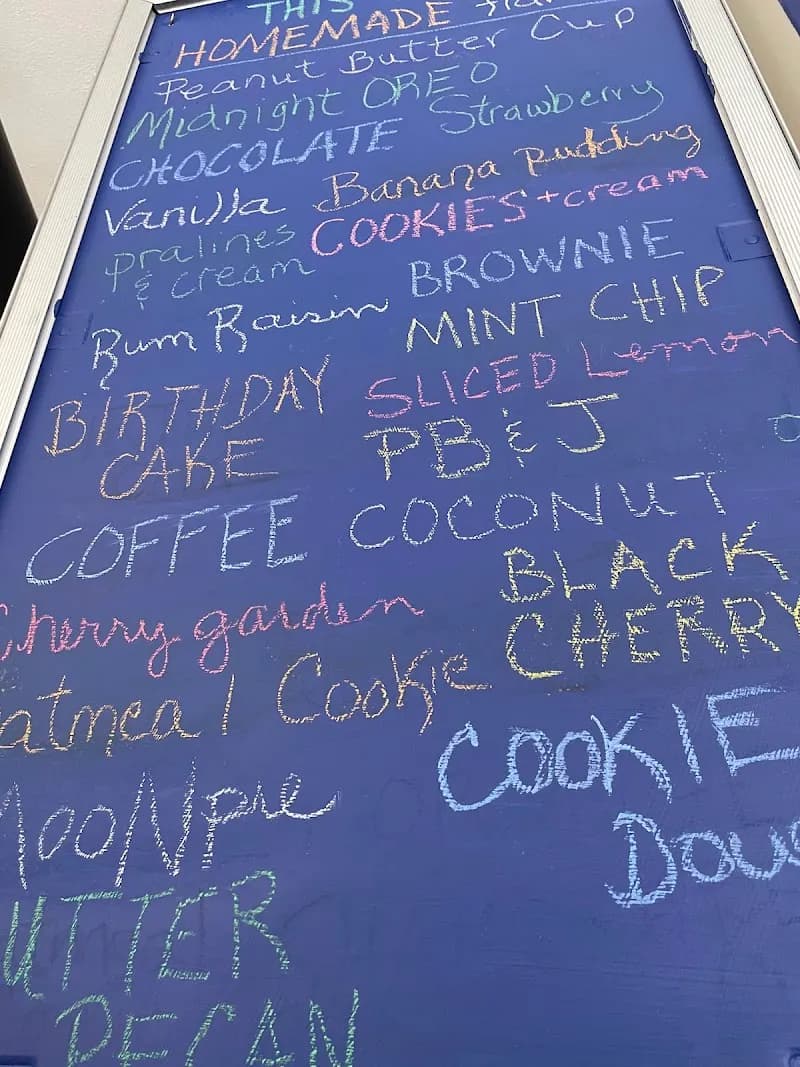 THIS
HOMEMADE
Peanut Butter Cup
Midnight OREO
CHOCOLATE Strawberry
Vanilla Banana Pudding
Pralines COOKIES + cream
& cream BROWNIE
Rum Raisin MINT CHIP
BIRTHDAY SLICED Lemon
CAKE PB & J
COFFEE COCONUT
Cherry garden BLACK
CHERRY
atmeal Cookie
COOKIE
MOON pie
Dou
UTTER
PECAN